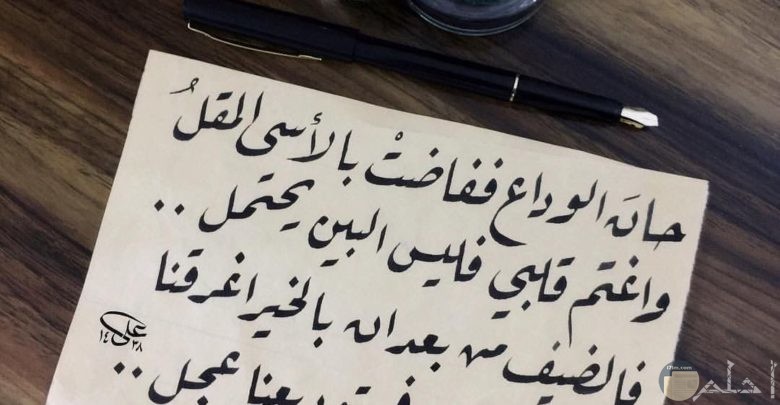 حانَ الوداع ففاضتْ بالأسى المقلُ
واغتم قلبي فليس البين يحتمل ..
فالضيف من بعد ان بالخير اغرقنا
توديعنا عجل ..
علي
١٤٣٨
احلم